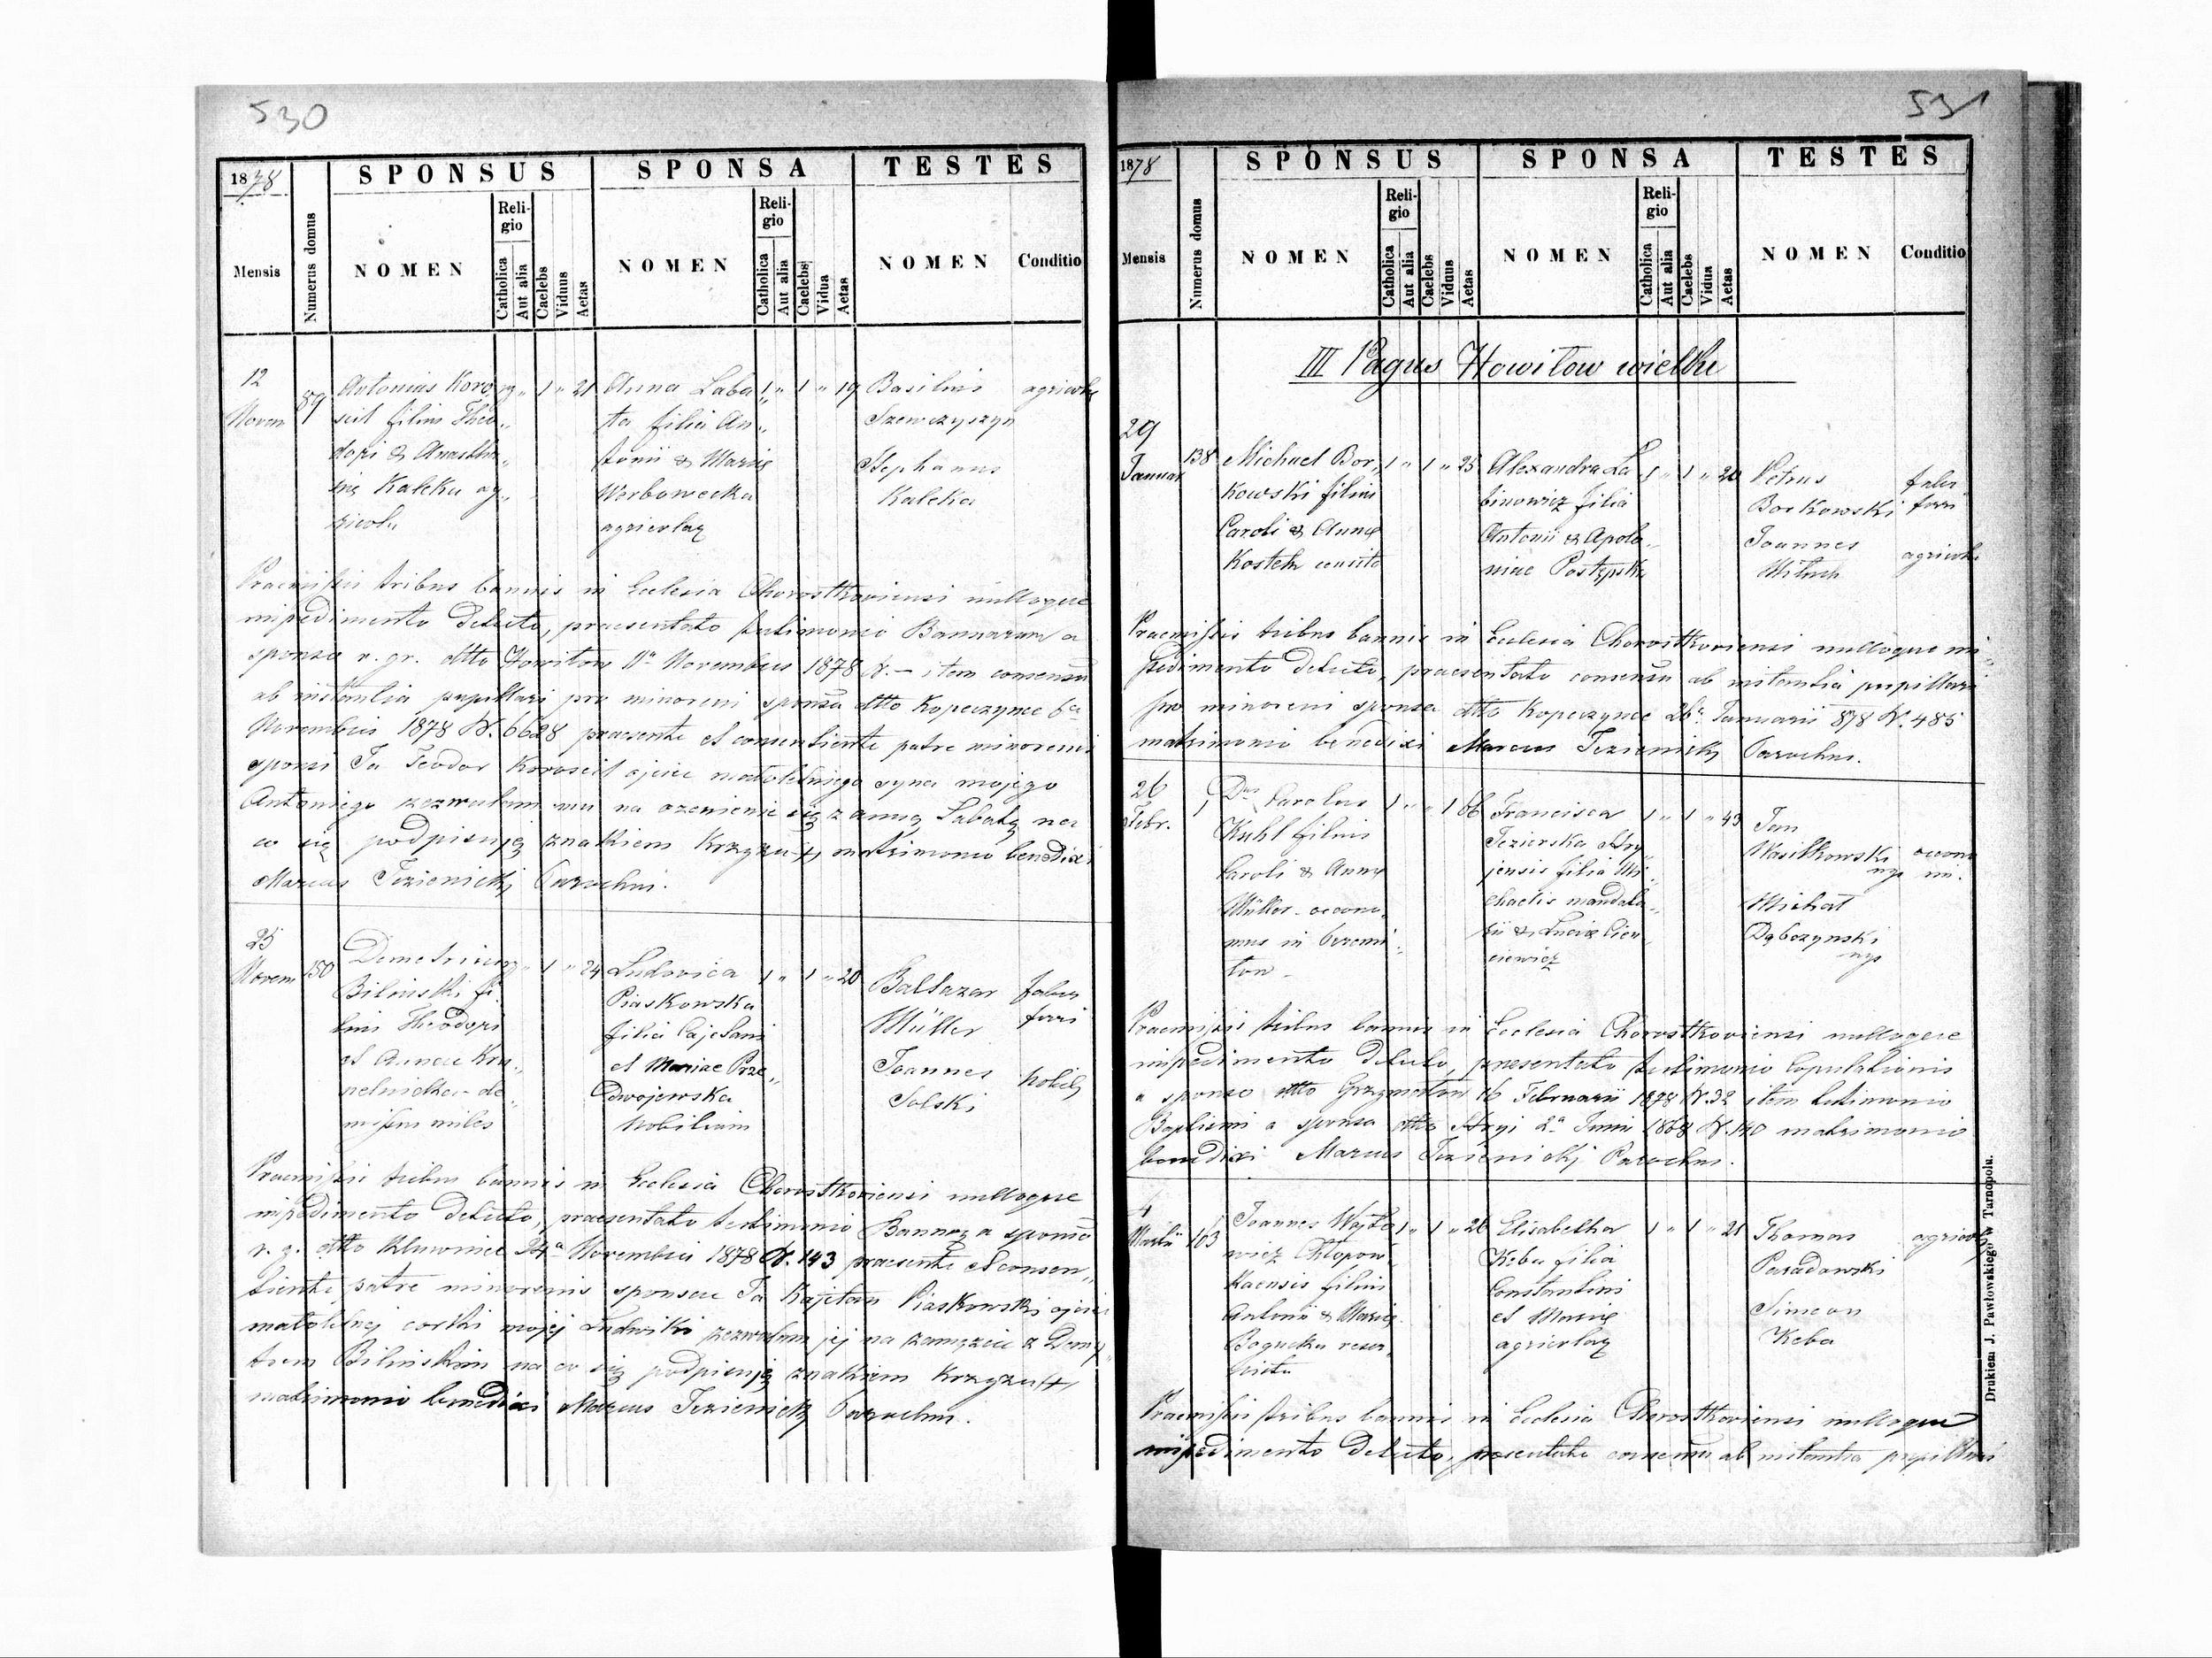 530
1878
SPONSUS
SPONSA
TESTES
Mensis
Numerus domus
NOMEN
Religio
Catholica
Aut alia
Caelebs
Viduus
Aetas
NOMEN
Religio
Catholica
Aut alia
Caelebs
Vidua
Aetas
NOMEN
Conditio
12 Novem 89
Antonius Koro
seil filius Theo„
dori & Anastha„
Kaleka ag„
ricola
1 „ 21
Anna Laba
ta filia An„
tonii & Mariæ
Werbowecka
agricolæ
1 „ 1 „ 19
Basilius
Szewczyszyn
Stephanus
Kaleka
agricola
Praemissis tribus bannis in Ecclesia Chorostkoviensi nulloque
impedimento detecto, praesentato testimonio Bannorum a
sponso r. gr. dtto Howilow 11ª Novembris 1878 N. — item consensu
ab instantia pupillari pro minoreni sponsa dtto Kopeczynce 6ª
Novembris 1878 N. 6628 praesente et consentiente patre minorenis
sponsi Ja Teodor Koroseil ojciec małoletniego syna mojego
Antoniego zezwalam mu na ozenienie się z Anną Labatą na
co się podpisuję znakiem krzyza +, matrimonio benedixi
Marcus Jezienicki Parochus.
25 Novem 150
Demetrius
Bilinski fi„
lius Theodori
et Annae Kru„
pelnicka de„
missus miles
1 „ 24
Ludovica
Piaskowska
filia Cajetani
et Mariae Prze„
dwojewska
nobilium
1 „ 1 „ 20
Baltazar
Müller
faber
ferri
Joannes
Solski
nobilis
Praemissis tribus bannis in Ecclesia Chorostkoviensi nulloque
impedimento detecto, praesentato testimonio Bannor. a sponso
r. g. dtto Kluwince 24ª Novembris 1878 N. 143 praesente et consen„
tiente patre minorenis sponsae Ja Kajetan Piaskowski ojciec
małoletnej corki mojej Ludwiki zezwalam jej na zamęzcie z Demy„
trem Bilinskim na co się podpisuję znakiem krzyza +,
matrimonio benedixi Marcus Jezienicki Parochus.
531
1878
SPONSUS
SPONSA
TESTES
Mensis
Numerus domus
NOMEN
Religio
Catholica
Aut alia
Caelebs
Viduus
Aetas
NOMEN
Religio
Catholica
Aut alia
Caelebs
Vidua
Aetas
NOMEN
Conditio
III Pagus Howilow wielki
29 Januar 138
Michael Bor„
kowski filius
Caroli & Annæ
Kosteh
1 „ 1 „ 25
Alexandra La
binowicz filia
Antonii & Apolo„
niae Postępska
1 „ 1 „ 20
Petrus
Borkowski
faber
ferri
Joannes
agricola
Praemissis tribus bannis in Ecclesia Chorostkoviensi nulloque im
pedimento detecto, praesentato consensu ab instantia pupillari
pro minoreni sponsa dtto Kopeczynce 26ª Januarii 878 N. 485
matrimonio benedixi Marcus Jezienicki Parochus.
26 Febr. 1
Dus Carolus
Kuhl filius
Caroli & Annæ
Müller oecono„
mus in
1 „ „ 1 66
Francisca
Jezierska Stry„
jensis filia Mi„
chaelis mandata„
rii & Luciæ Cien„
ciewicz
1 „ 1 „ 43
Jan
Wasilkowski
mp
oecono
mi.
Michał
Dąbczynski
mp
Praemissis tribus bannis in Ecclesia Chorostkoviensi nulloque
impedimento detecto, praesentato testimonio Copulationis
a sponso dtto Grzymałow 16 Februarii 1878 N. 32 item testimonio
Baptismi a sponsa dtto Stryi 2ª Junii 1868 N. 140 matrimonio
benedixi Marcus Jezienicki Parochus.
4 Martii 103
Joannes Wojto
wicz Chłopow„
kaensis filius
Antonii & Mariæ
Bogucka reser„
vista
1 „ 1 „ 26
Elisabetha
Keba filia
Constantini
et Mariæ
agricolæ
1 „ 1 „ 21
Thomas
Paradowski
Simeon
Keba
agricolæ
Praemissis tribus bannis in Ecclesia Chorostkoviensi nulloque
impedimento detecto, praesentato consensu ab instantia pupillari
Drukiem J. Pawłowskiego w Tarnopolu.